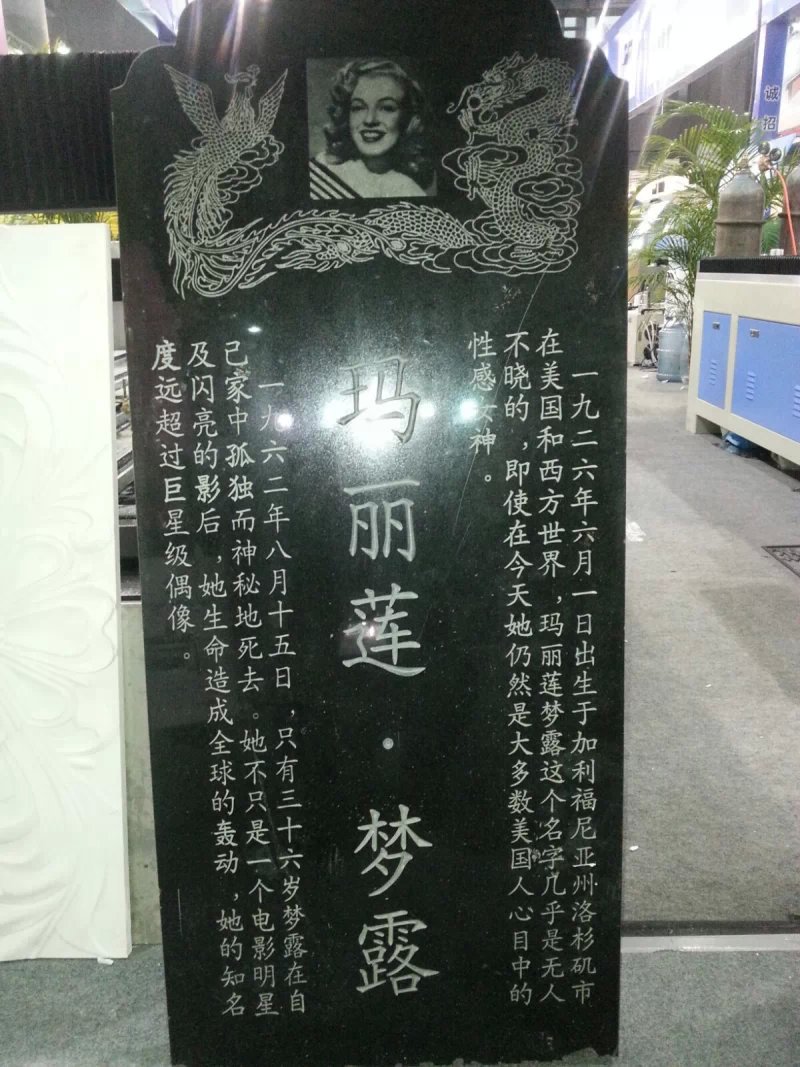 一九二六年六月一日出生于加利福尼亚州洛杉矶市
在美国和西方世界，玛丽莲梦露这个名字几乎是无人
不晓的，即使在今天她仍然是大多数美国人心目中的
性感女神。
玛丽莲·梦露
一九六二年八月十五日，只有三十六岁梦露在自
己家中孤独而神秘地死去。她不只是一个电影明星
及闪亮的影后，她生命造成全球的轰动，她的知名
度远超过巨星级偶像。
诚招